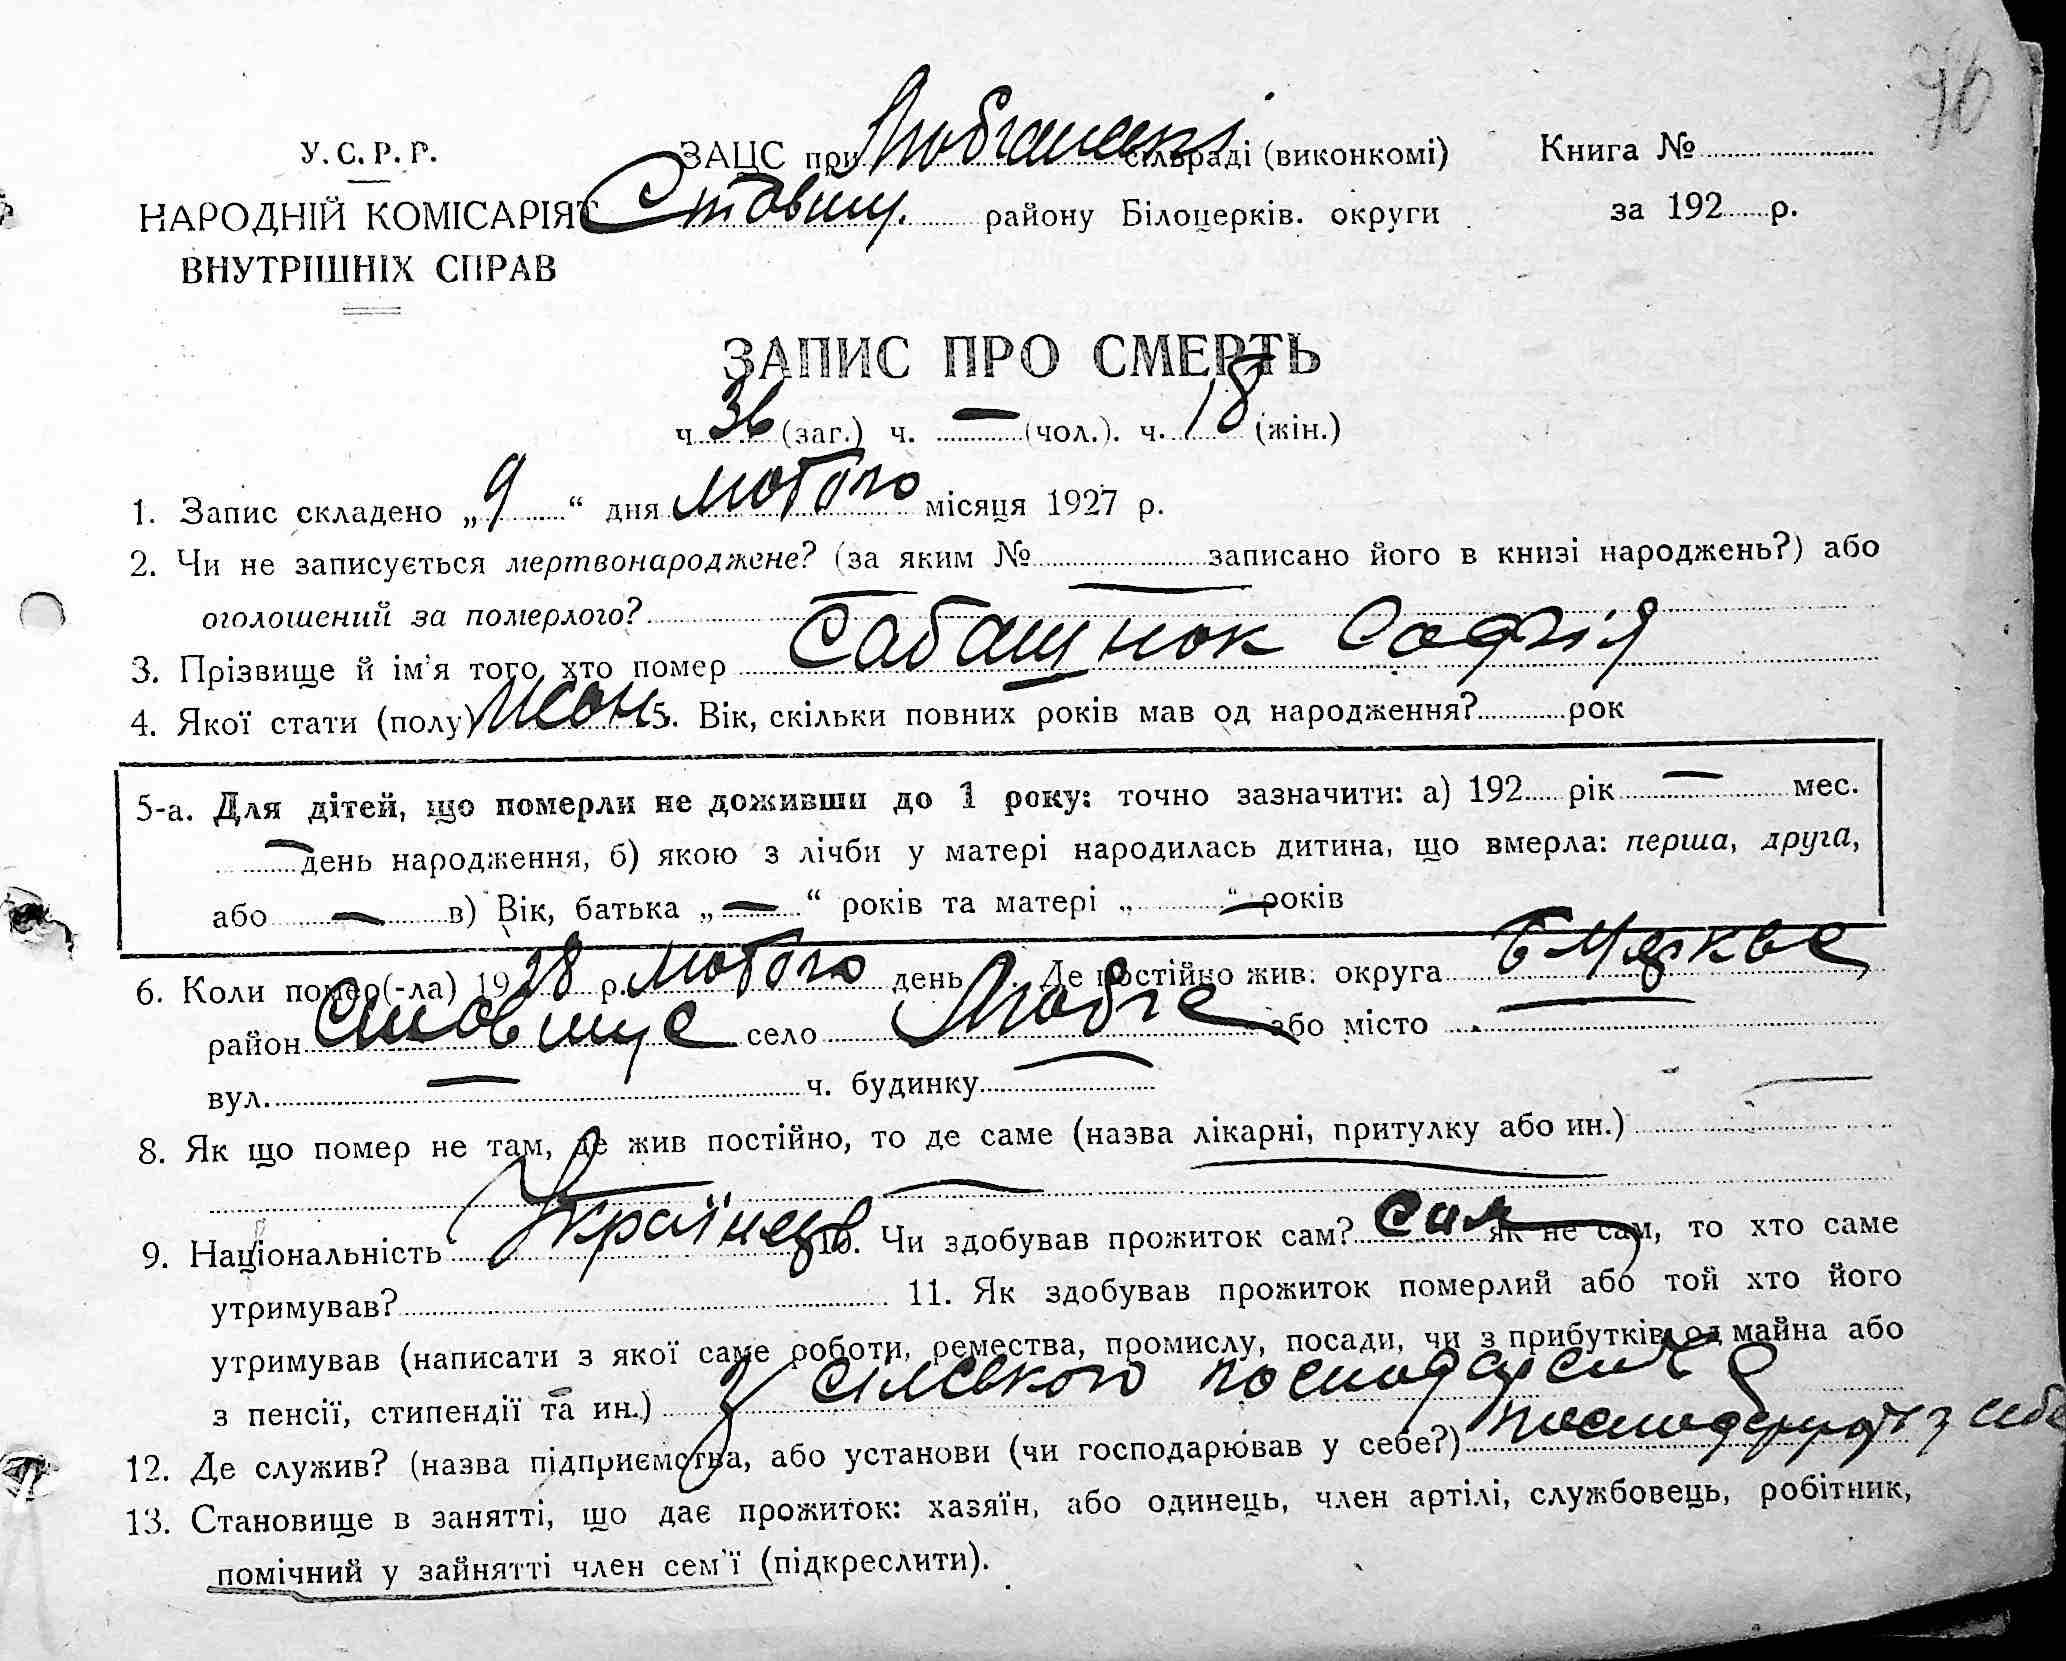 76
У.С.Р.Р.
НАРОДНІЙ КОМІСАРІЯТ
ВНУТРІШНІХ СПРАВ
ЗАЦС при сільраді (виконкомі)
Ставищ. району Білоцерків. округи
Книга №
за 192 р.
ЗАПИС ПРО СМЕРТЬ
ч. 36 (заг.) ч. — (чол.). ч. 18 (жін.)
1. Запис складено „9“ дня лютого місяця 1927 р.
2. Чи не записується мертвонароджене? (за яким № записано його в книзі народжень?) або
оголошений за померлого?
3. Прізвище й ім'я того, хто помер Сабащнюк Софія
4. Якої стати (полу) жон. 5. Вік, скільки повних років мав од народження? рок
5-а. Для дітей, що померли не доживши до 1 року: точно зазначити: а) 192 рік — мес.
— день народження, б) якою з лічби у матері народилась дитина, що вмерла: перша, друга,
або — в) Вік, батька „—“ років та матері „—“ років
6. Коли помер(-ла) 1928 р. лютого день Де постійно жив: округа
район Ставище село Любче або місто —
вул. — ч. будинку —
8. Як що помер не там, де жив постійно, то де саме (назва лікарні, притулку або ин.) —
9. Національність Українець 10. Чи здобував прожиток сам? сам як не сам, то хто саме
утримував? 11. Як здобував прожиток померлий або той хто його
утримував (написати з якої саме роботи, ремества, промислу, посади, чи з прибутків од майна або
з пенсії, стипендії та ин.) з сілського
12. Де служив? (назва підприємства, або установи (чи господарював у себе?)
13. Становище в занятті, що дає прожиток: хазяїн, або одинець, член артілі, службовець, робітник,
помічний у зайнятті член сем'ї (підкреслити).